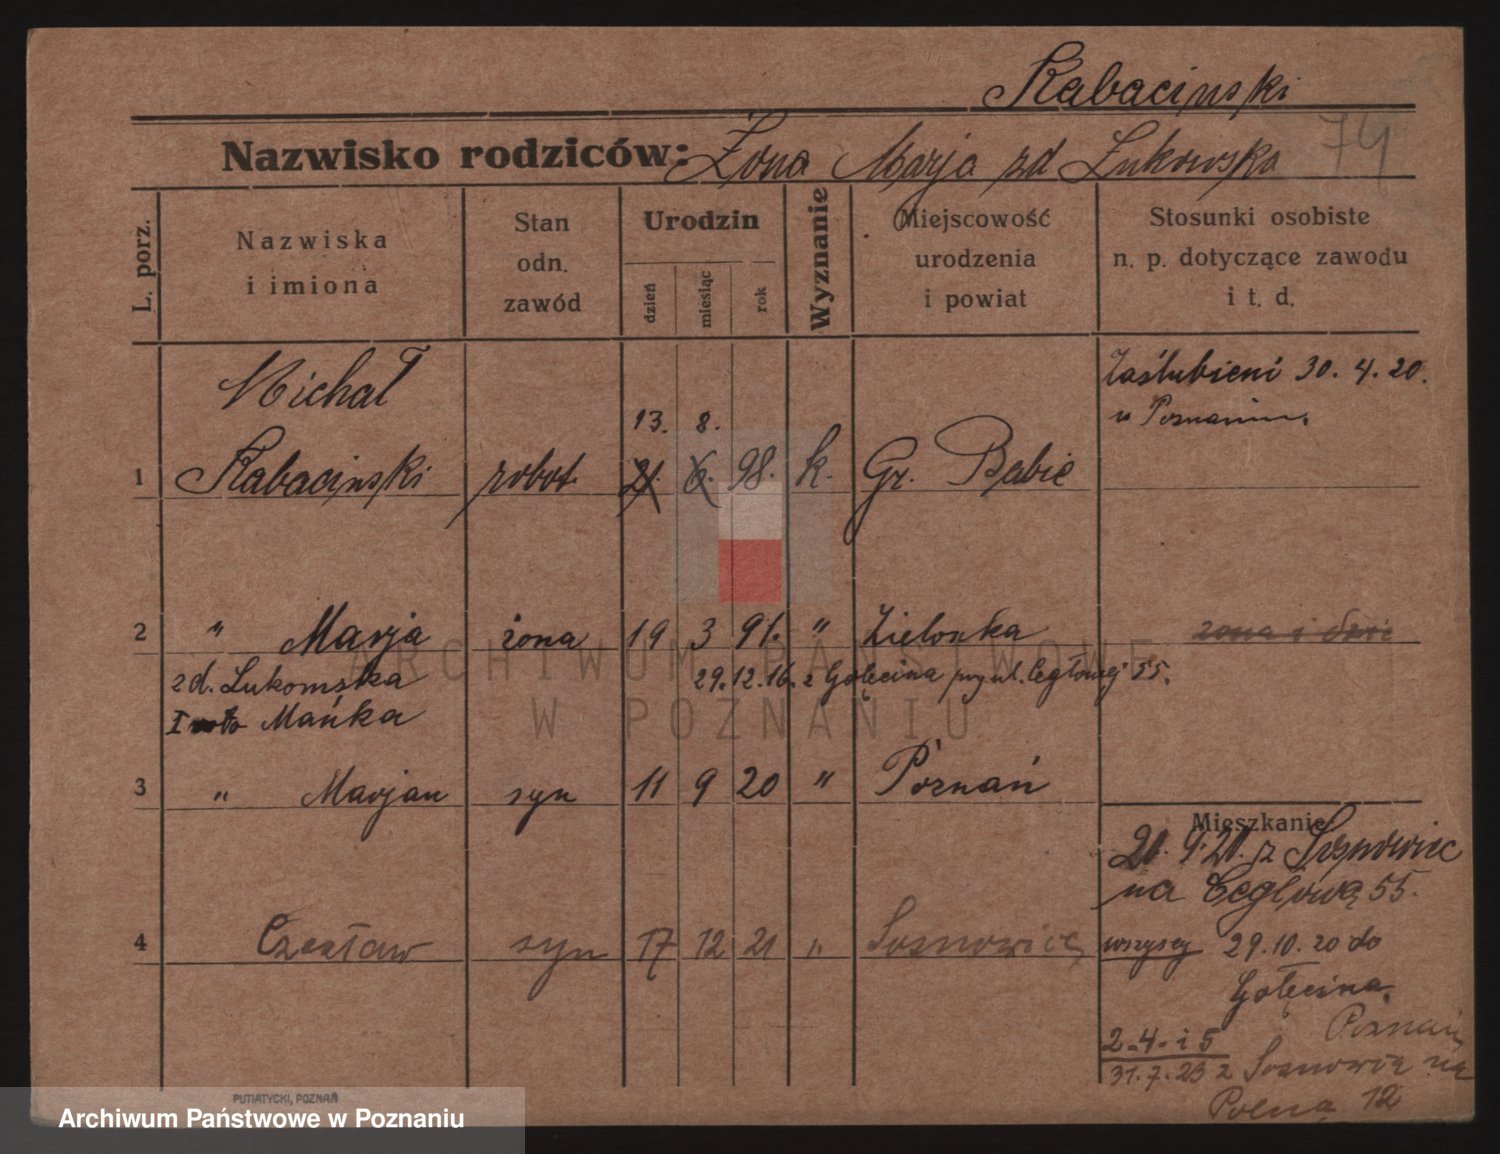 Rabaciński
74
Nazwisko rodziców: Żona Marja zd Łukowska
L. porz.
Nazwiska i imiona
Stan odn. zawód
Urodzin
dzień
miesiąc
rok
Wyznanie
Miejscowość urodzenia i powiat
Stosunki osobiste n. p. dotyczące zawodu i t. d.
Michał
Zaślubieni 30. 4. 20.
13. 8.
w Poznaniu.
1 Rabaciński robot. 21. 6. 98. k. Gr. Babie
2 " Marja żona 19 3 91. " Zielonka żona i
zd. Łukomska 29.12.16. z Golęcina przy ul. Cegłowej 55.
I Mańka
3 " Marjan syn 11 9 20 " Poznań
Mieszkanie:
20. 9. 20. z Sosnowiec
na Cegłową 55.
4 Czesław syn 17 12 21 " Sosnowice
wszyscy 29.10.20 do
Golęcina.
Poznań
2-4. i 5
31.7.23 z Sosnowic na
Polną 12
PUTIATYCKI, POZNAŃ
ARCHIWUM PAŃSTWOWE
W POZNANIU
Archiwum Państwowe w Poznaniu